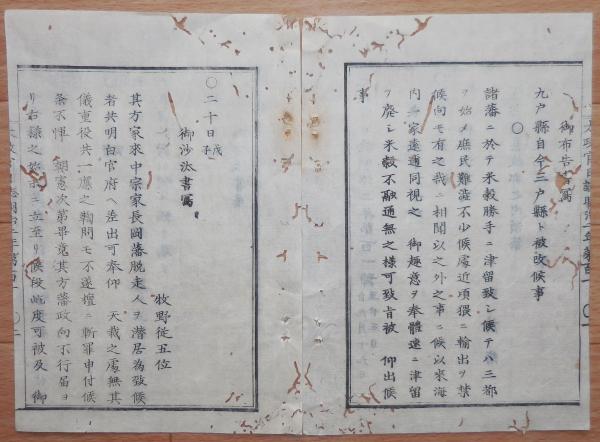 御布告書寫
九戸縣自今三戸縣ト被改候事
○
諸藩ニ於テ米穀勝手ニ津留致シ候テハ三都
ヲ始メ庶民難澁不少候處近頃猥ニ輸出ヲ禁
候向モ有之哉ニ相聞以之外之事ニ候以來海
内一家遠近同視之 御趣意ヲ奉體速ニ津留
ヲ廢シ米穀不融通無之樣可致旨被 仰出候
事
○二十日戊子
御沙汰書寫
牧野從五位
其方家來中宗家長岡藩脱走人ヲ潜居為致候
者共明白官府ヘ差出可奉仰 天裁之處無其
儀重役共一應之鞠問モ不遂擅ニ斬罪申付候
条不憚 朝憲次第畢竟其方藩政向不行届ヨ
リ右樣之始末ニ立至リ候段屹度可被及 御